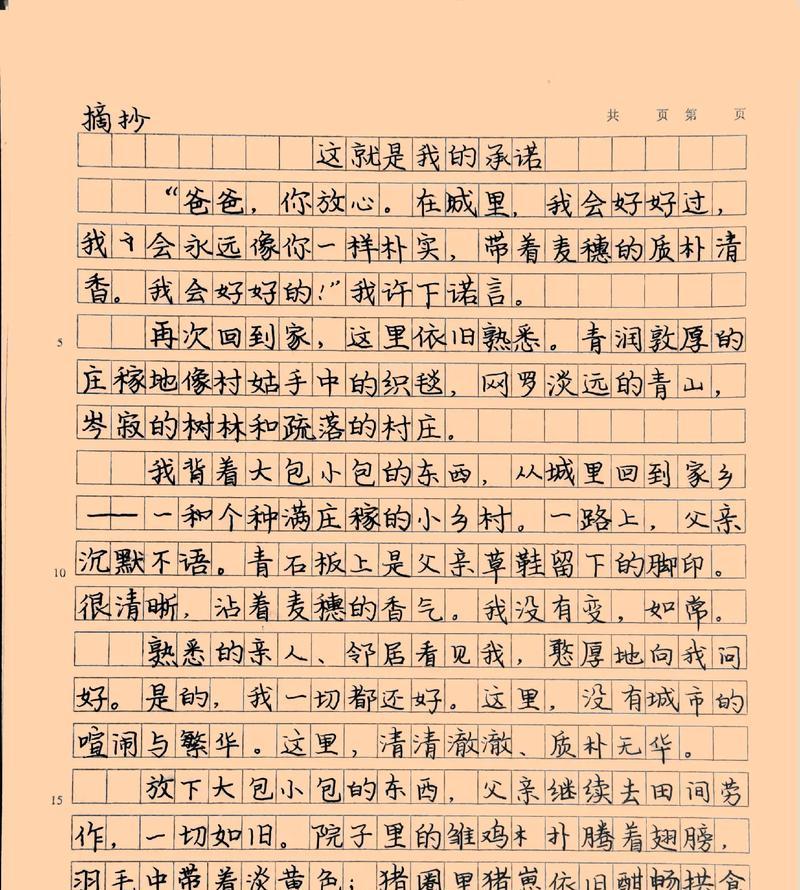 摘抄
共 页 第 页
这就是我的承诺
“爸爸，你放心。在城里，我会好好过，
我会永远像你一样朴实，带着麦穗的质朴清
香。我会好好的!”我许下诺言。
5 再次回到家，这里依旧熟悉。青润敦厚的
庄稼地像村姑手中的织毯，网罗淡远的青山，
岑寂的树林和疏落的村庄。
我背着大包小包的东西，从城里回到家乡
——一和个种满庄稼的小乡村。一路上，父亲
10 沉默不语。青石板上是父亲草鞋留下的脚印。
很清晰，沾着麦穗的香气。我没有变，如常。
熟悉的亲人、邻居看见我，憨厚地向我问
好。是的，我一切都还好。这里，没有城市的
喧闹与繁华。这里，清清澈澈、质朴无华。
15 放下大包小包的东西，父亲继续去田间劳
作，一切如旧。院子里的雏鸡扑腾着翅膀，
羽毛中带着淡黄色；猪圈里猪崽依旧酣畅拱食